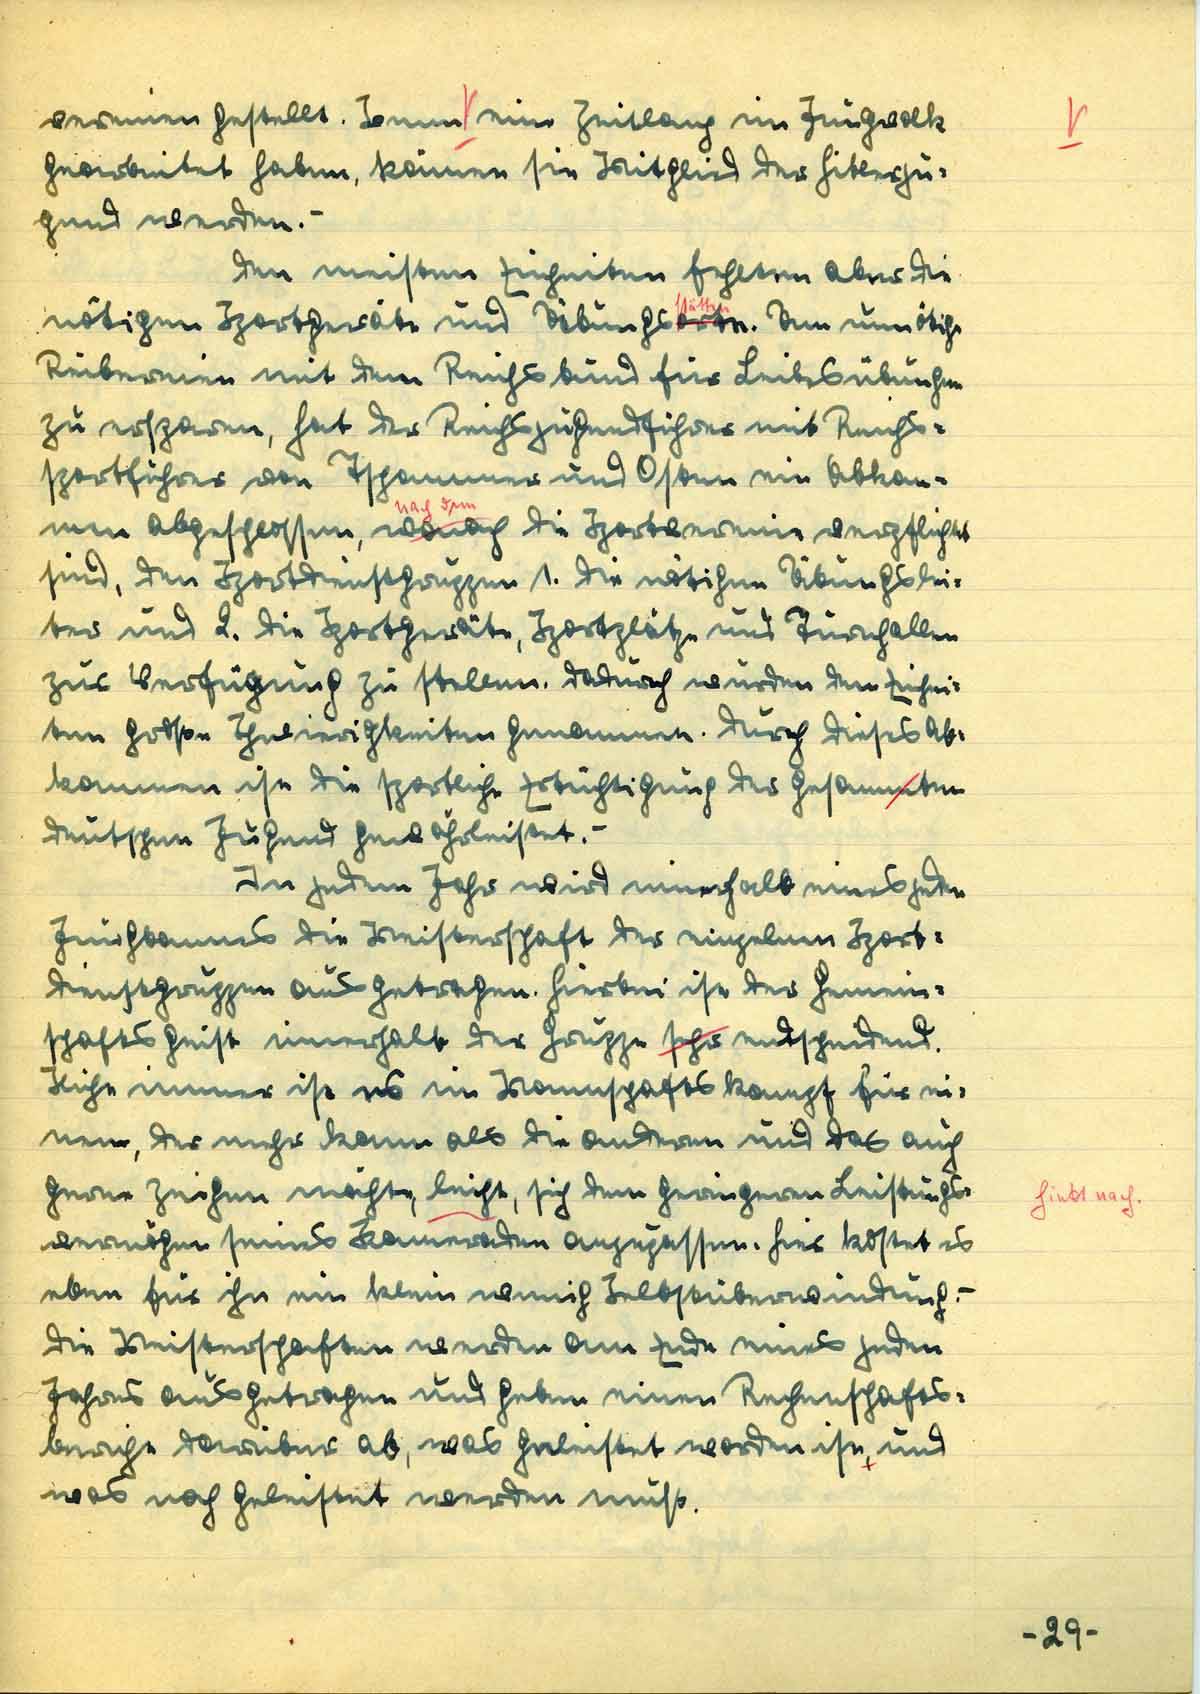 vereinen gestellt. Wenn √ eine Zeitlang im Jungvolk √
gearbeitet haben, können sie Mitglied der Hitlerju-
gend werden.-
Den meisten Einheiten fehlten aber die
nötigen Sportgeräte und Übungsorte. Um unnötige
stätten
Reibereien mit dem Reichsbund für Leibesübungen
zu ersparen, hat der Reichsjugendführer mit Reichs-
sportführer von Tschammer und Osten ein Abkom-
nach dem
men abgeschlossen, wonach die Sportvereine verpflichtet
sind, den Sportdienstgruppen 1. die nötigen Übungslei-
ter und 2. die Sportgeräte, Sportplätze und Turnhallen
zur Verfügung zu stellen. Dadurch wurden den Einhei-
ten große Schwierigkeiten genommen. Durch dieses Ab-
kommen ist die sportliche Ertüchtigung der gesammten
deutschen Jugend gewährleistet.-
In jedem Jahr wird innerhalb eines jeden
Jungbannes die Meisterschaft der einzelnen Sport-
dienstgruppen ausgetragen. Hierbei ist der Gemein-
schaftsgeist innerhalb der Gruppe sehr entscheidend.
Nicht immer ist es im Mannschaftskampf für ei-
nen, der mehr kann als die anderen und das auch
gerne zeigen möchte, leicht, sich dem geringeren Leistungs- hinkt nach.
vermögen seines Kameraden anzupassen. Hier kostet es
eben für ihn ein klein wenig Selbstüberwindung.-
Die Meisterschaften werden am Ende eines jeden
Jahres ausgetragen und geben einen Rechenschafts-
bericht darüber ab, was geleistet worden ist, und
was noch geleistet werden muß.
-29-